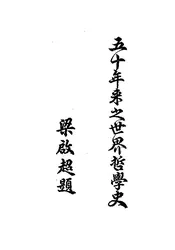 五十年來之世界哲學史
梁啟超題